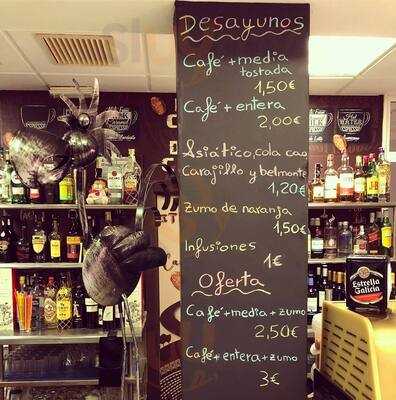 Desayunos
Café + media
tostada
1,50€
Café + entera
2,00€
Asiático, cola cao
Carajillo y belmonte
1,20€
Zumo de naranja
1,50€
Infusiones
1€
Oferta
Café+media+zumo
2,50€
Café+entera+zumo
3€
Estrella
Galicia